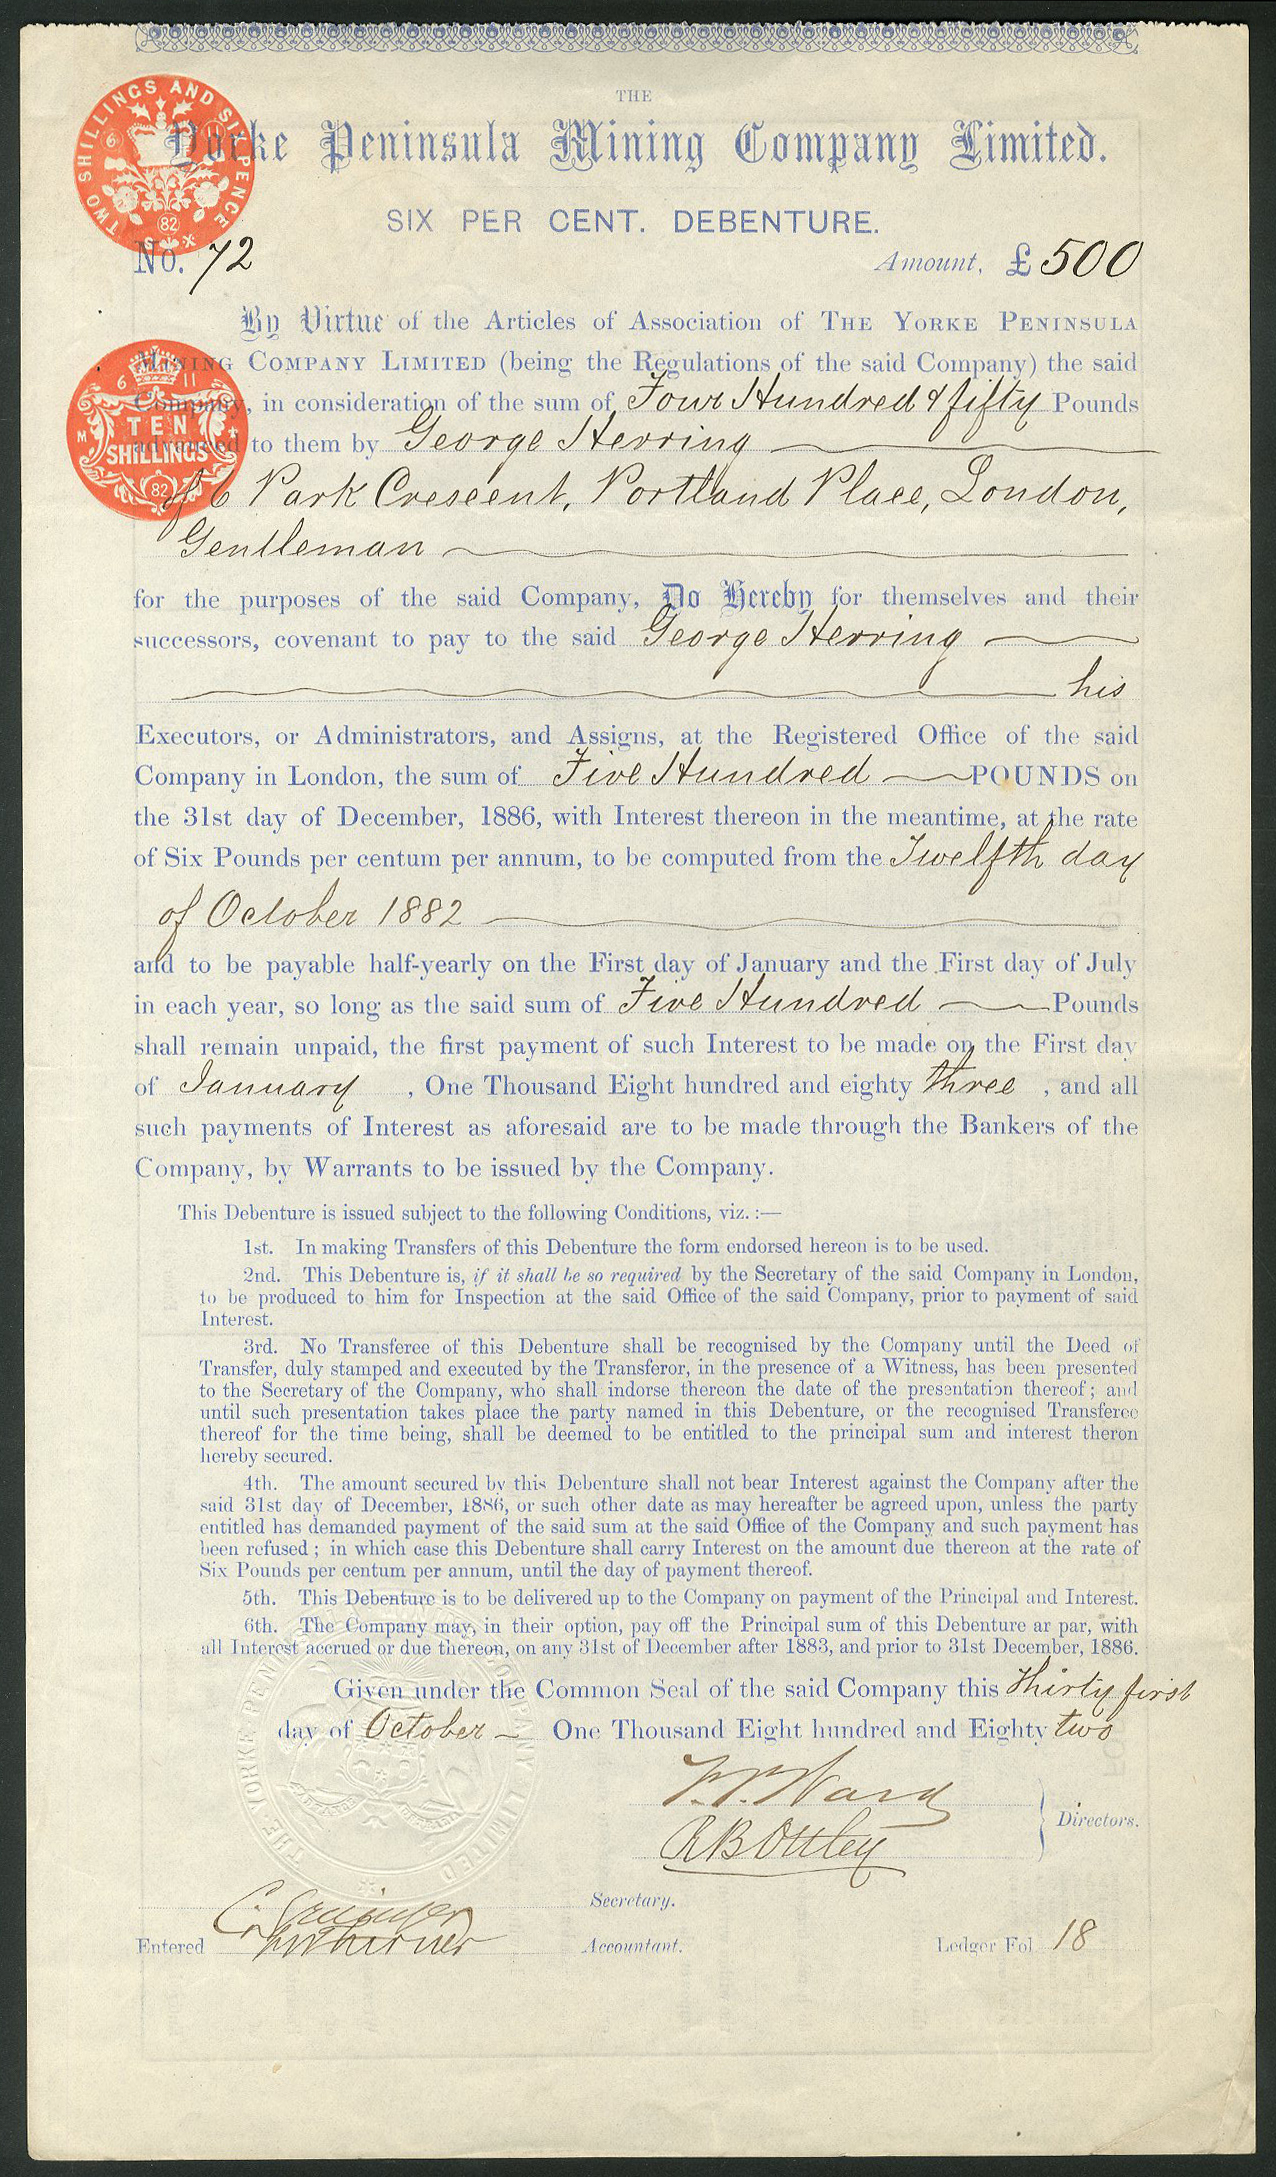 THE
Yorke Peninsula Mining Company Limited.
SIX PER CENT. DEBENTURE.
TWO SHILLINGS AND SIX PENCE
82
No. 72
Amount, £500
By Virtue of the Articles of Association of THE YORKE PENINSULA
MINING COMPANY LIMITED (being the Regulations of the said Company) the said
Company, in consideration of the sum of Four Hundred & fifty Pounds
advanced to them by George Herring
6 11
M
TEN
SHILLINGS
82
of 6 Park Crescent, Portland Place, London,
Gentleman
for the purposes of the said Company, Do Hereby for themselves and their
successors, covenant to pay to the said George Herring
his
Executors, or Administrators, and Assigns, at the Registered Office of the said
Company in London, the sum of Five Hundred POUNDS on
the 31st day of December, 1886, with Interest thereon in the meantime, at the rate
of Six Pounds per centum per annum, to be computed from the Twelfth day
of October 1882
and to be payable half-yearly on the First day of January and the First day of July
in each year, so long as the said sum of Five Hundred Pounds
shall remain unpaid, the first payment of such Interest to be made on the First day
of January , One Thousand Eight hundred and eighty three , and all
such payments of Interest as aforesaid are to be made through the Bankers of the
Company, by Warrants to be issued by the Company.
This Debenture is issued subject to the following Conditions, viz. :—
1st. In making Transfers of this Debenture the form endorsed hereon is to be used.
2nd. This Debenture is, if it shall be so required by the Secretary of the said Company in London,
to be produced to him for Inspection at the said Office of the said Company, prior to payment of said
Interest.
3rd. No Transferee of this Debenture shall be recognised by the Company until the Deed of
Transfer, duly stamped and executed by the Transferor, in the presence of a Witness, has been presented
to the Secretary of the Company, who shall indorse thereon the date of the presentation thereof; and
until such presentation takes place the party named in this Debenture, or the recognised Transferee
thereof for the time being, shall be deemed to be entitled to the principal sum and interest theron
hereby secured.
4th. The amount secured by this Debenture shall not bear Interest against the Company after the
said 31st day of December, 1886, or such other date as may hereafter be agreed upon, unless the party
entitled has demanded payment of the said sum at the said Office of the Company and such payment has
been refused ; in which case this Debenture shall carry Interest on the amount due thereon at the rate of
Six Pounds per centum per annum, until the day of payment thereof.
5th. This Debenture is to be delivered up to the Company on payment of the Principal and Interest.
6th. The Company may, in their option, pay off the Principal sum of this Debenture ar par, with
all Interest accrued or due thereon, on any 31st of December after 1883, and prior to 31st December, 1886.
Given under the Common Seal of the said Company this Thirty first
day of October One Thousand Eight hundred and Eighty two
THE YORKE PENINSULA MINING COMPANY LIMITED
Ward
R B Ottley
Directors.
C. Grainger
Secretary.
Entered
Accountant.
Ledger Fol 18